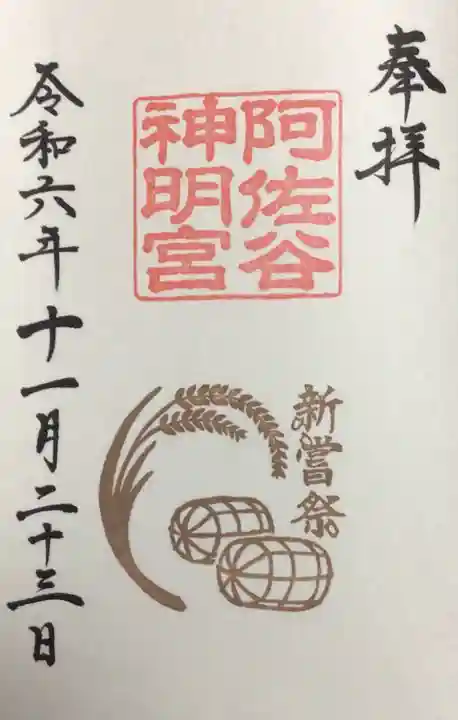 奉拝
阿佐谷
神明宮
新嘗祭
令和六年十一月二十三日